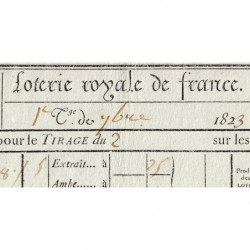 Loterie royale de france.
1er Tge. de 9bre 1823
pour le TIRAGE du 2 sur les
Extrait...à 25
Ambe....à
Prod
des
LOT